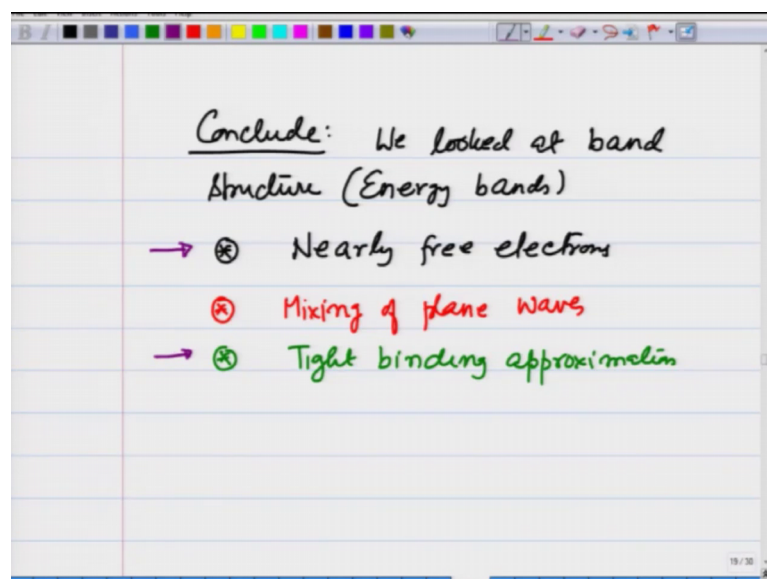 Conclude: We looked at band
structure (Energy bands)
→ ⊛ Nearly free electrons
⊛ Mixing of plane waves
→ ⊛ Tight binding approximation
19 / 30